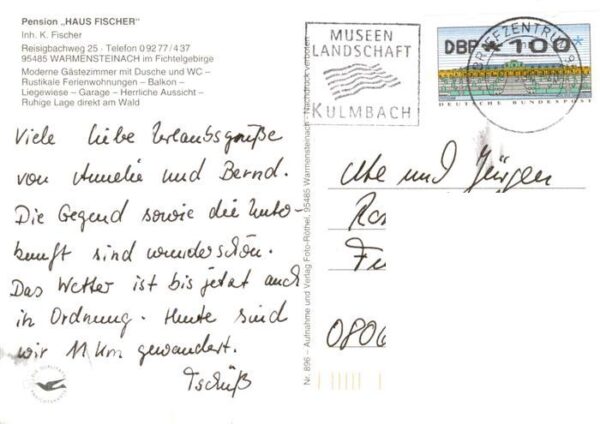 Pension „HAUS FISCHER"
Inh. K. Fischer
Reisigbachweg 25 - Telefon 0 92 77 / 4 37
95485 WARMENSTEINACH im Fichtelgebirge
Moderne Gästezimmer mit Dusche und WC –
Rustikale Ferienwohnungen – Balkon –
Liegewiese – Garage – Herrliche Aussicht –
Ruhige Lage direkt am Wald
Viele liebe Urlaubsgrüße
von Annelie und Bernd.
Die Gegend sowie die Unter-
kunft sind wunderschön.
Das Wetter ist bis jetzt auch
in Ordnung. Heute sind
wir 11 Km gewandert.
Tschüß
Nr. 896 – Aufnahme und Verlag Foto-Röthel, 95485 Warmensteinach · Nachdruck verboten
MUSEEN
LANDSCHAFT
KULMBACH
BRIEFZENTRUM
DBP * 100 *
DEUTSCHE BUNDESPOST
Ute und Jürgen
0806